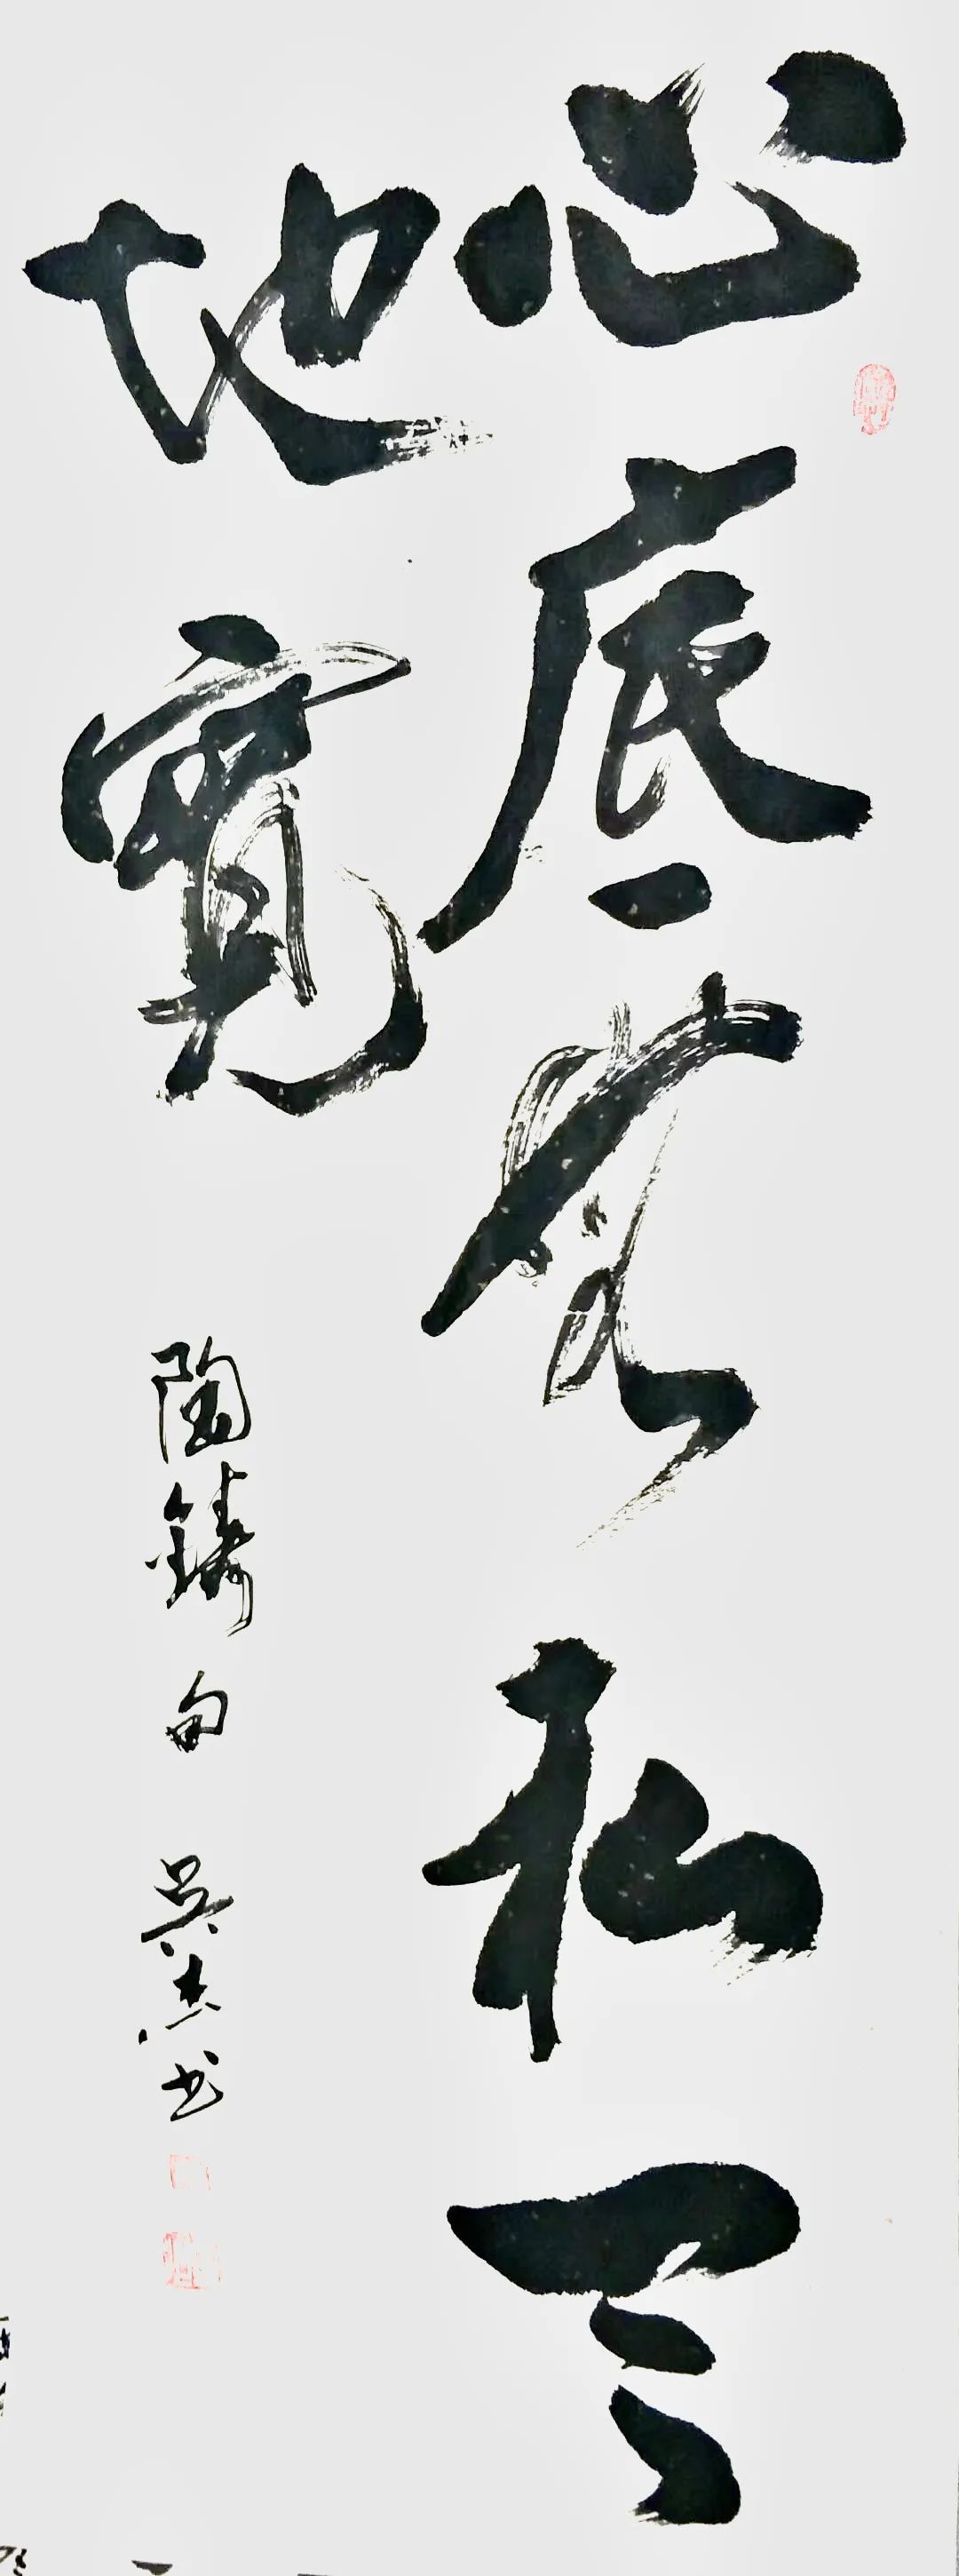 心底无私天
地寬
陶鑄句 吴杰书